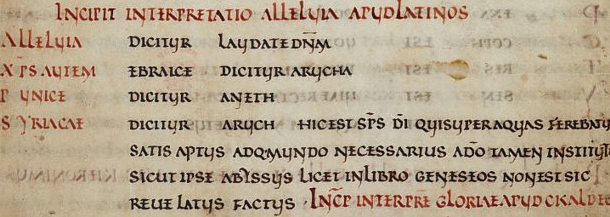 INCIPIT INTERPRETATIO ALLELUIA APUD LATINOS
ALLELUIA DICITUR LAUDATE DN̄M
XP̄S AUTEM EBRAICE DICITUR ARUCHA
PUNICE DICITUR ANETH
SYRIACAE DICITUR ARUCH HIC EST SP̄S DĪ QUI SUPER AQUAS FEREBATUR
SATIS APTUS ADQ· MUNDO NECESSARIUS A DŌ TAMEN INSTITUT
SICUT IPSE ABYSSUS LICET IN LIBRO GENESEOS NON EST SIC
REUELATUS FACTUS · INCP̄ INTERPRĒ GLORIAE APUD CKALDE